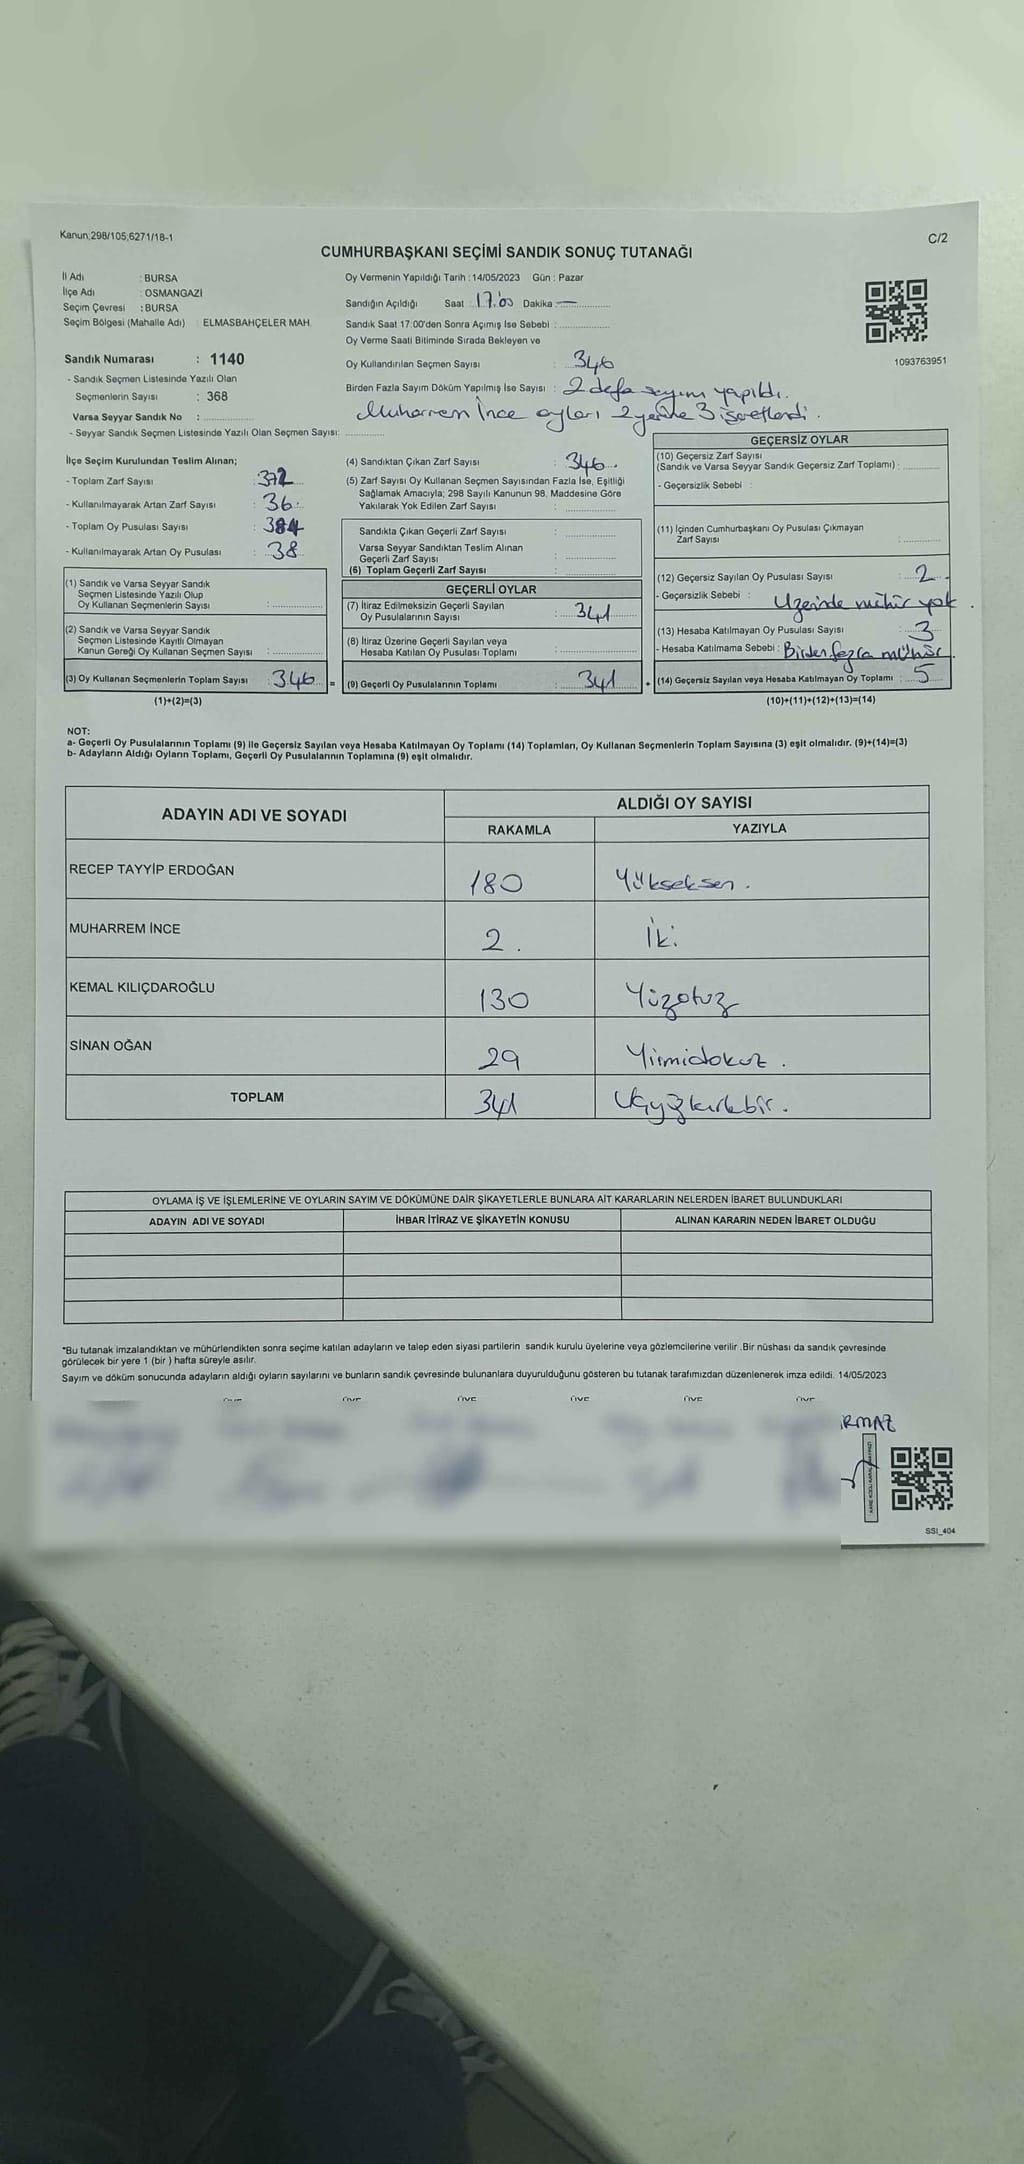 Kanun;298/105,6271/18-1
C/2
CUMHURBAŞKANI SEÇİMİ SANDIK SONUÇ TUTANAĞI
İl Adı : BURSA
İlçe Adı : OSMANGAZİ
Seçim Çevresi : BURSA
Seçim Bölgesi (Mahalle Adı) : ELMASBAHÇELER MAH.
Sandık Numarası : 1140
- Sandık Seçmen Listesinde Yazılı Olan
Seçmenlerin Sayısı : 368
Varsa Seyyar Sandık No :
- Seyyar Sandık Seçmen Listesinde Yazılı Olan Seçmen Sayısı:
Oy Vermenin Yapıldığı Tarih : 14/05/2023 Gün : Pazar
Sandığın Açıldığı Saat : 17:00 Dakika : —
Sandık Saat 17:00'den Sonra Açımış İse Sebebi :
Oy Verme Saati Bitiminde Sırada Bekleyen ve
Oy Kullandırılan Seçmen Sayısı : 346
Birden Fazla Sayım Döküm Yapılmış İse Sayısı : 2 defa sayım yapıldı.
Muharrem İnce oyları 2 yerine 3 işaretlendi.
1093763951
İlçe Seçim Kurulundan Teslim Alınan;
- Toplam Zarf Sayısı : 372
- Kullanılmayarak Artan Zarf Sayısı : 36
- Toplam Oy Pusulası Sayısı : 384
- Kullanılmayarak Artan Oy Pusulası : 38
(1) Sandık ve Varsa Seyyar Sandık
Seçmen Listesinde Yazılı Olup
Oy Kullanan Seçmenlerin Sayısı :
(2) Sandık ve Varsa Seyyar Sandık
Seçmen Listesinde Kayıtlı Olmayan
Kanun Gereği Oy Kullanan Seçmen Sayısı :
(3) Oy Kullanan Seçmenlerin Toplam Sayısı : 346 =
(1)+(2)=(3)
(4) Sandıktan Çıkan Zarf Sayısı : 346
(5) Zarf Sayısı Oy Kullanan Seçmen Sayısından Fazla İse, Eşitliği
Sağlamak Amacıyla; 298 Sayılı Kanunun 98. Maddesine Göre
Yakılarak Yok Edilen Zarf Sayısı :
Sandıkta Çıkan Geçerli Zarf Sayısı :
Varsa Seyyar Sandıktan Teslim Alınan
Geçerli Zarf Sayısı :
(6) Toplam Geçerli Zarf Sayısı :
GEÇERLİ OYLAR
(7) İtiraz Edilmeksizin Geçerli Sayılan
Oy Pusulalarının Sayısı : 341
(8) İtiraz Üzerine Geçerli Sayılan veya
Hesaba Katılan Oy Pusulası Toplamı :
(9) Geçerli Oy Pusulalarının Toplamı : 341 +
GEÇERSİZ OYLAR
(10) Geçersiz Zarf Sayısı
(Sandık ve Varsa Seyyar Sandık Geçersiz Zarf Toplamı) :
- Geçersizlik Sebebi :
(11) İçinden Cumhurbaşkanı Oy Pusulası Çıkmayan
Zarf Sayısı :
(12) Geçersiz Sayılan Oy Pusulası Sayısı : 2
- Geçersizlik Sebebi : Üzerinde mühür yok.
(13) Hesaba Katılmayan Oy Pusulası Sayısı : 3
- Hesaba Katılmama Sebebi : Birden fazla mühür.
(14) Geçersiz Sayılan veya Hesaba Katılmayan Oy Toplamı : 5
(10)+(11)+(12)+(13)=(14)
NOT:
a- Geçerli Oy Pusulalarının Toplamı (9) ile Geçersiz Sayılan veya Hesaba Katılmayan Oy Toplamı (14) Toplamları, Oy Kullanan Seçmenlerin Toplam Sayısına (3) eşit olmalıdır. (9)+(14)=(3)
b- Adayların Aldığı Oyların Toplamı, Geçerli Oy Pusulalarının Toplamına (9) eşit olmalıdır.
ADAYIN ADI VE SOYADI ALDIĞI OY SAYISI
RAKAMLA YAZIYLA
RECEP TAYYİP ERDOĞAN 180 Yükseksen.
MUHARREM İNCE 2. İki
KEMAL KILIÇDAROĞLU 130 Yüzotuz
SİNAN OĞAN 29 Yirmidokuz.
TOPLAM 341 Üçyüzkırkbir.
OYLAMA İŞ VE İŞLEMLERİNE VE OYLARIN SAYIM VE DÖKÜMÜNE DAİR ŞİKAYETLERLE BUNLARA AİT KARARLARIN NELERDEN İBARET BULUNDUKLARI
ADAYIN ADI VE SOYADI İHBAR İTİRAZ VE ŞİKAYETİN KONUSU ALINAN KARARIN NEDEN İBARET OLDUĞU
*Bu tutanak imzalandıktan ve mühürlendikten sonra seçime katılan adayların ve talep eden siyasi partilerin sandık kurulu üyelerine veya gözlemcilerine verilir .Bir nüshası da sandık çevresinde
görülecek bir yere 1 (bir ) hafta süreyle asılır.
Sayım ve döküm sonucunda adayların aldığı oyların sayılarını ve bunların sandık çevresinde bulunanlara duyurulduğunu gösteren bu tutanak tarafımızdan düzenlenerek imza edildi. 14/05/2023
ÜYE ÜYE ÜYE ÜYE ÜYE
IRMAZ
SSI_404